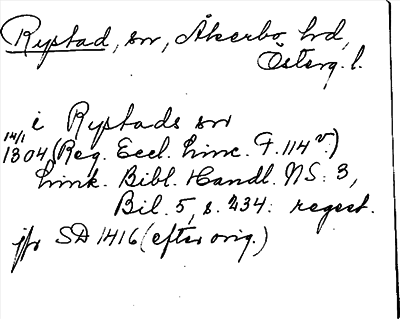 Rystad, sn, Åkerbo hd,
Österg. l.
i Rystads sn
14/1 1304 (Reg. Eccl. Linc. F. 114 v.)
Link. Bibl. Handl. NS. 3,
Bil. 5, s. 234. regest.
jfr SD 1416 (efter orig.)